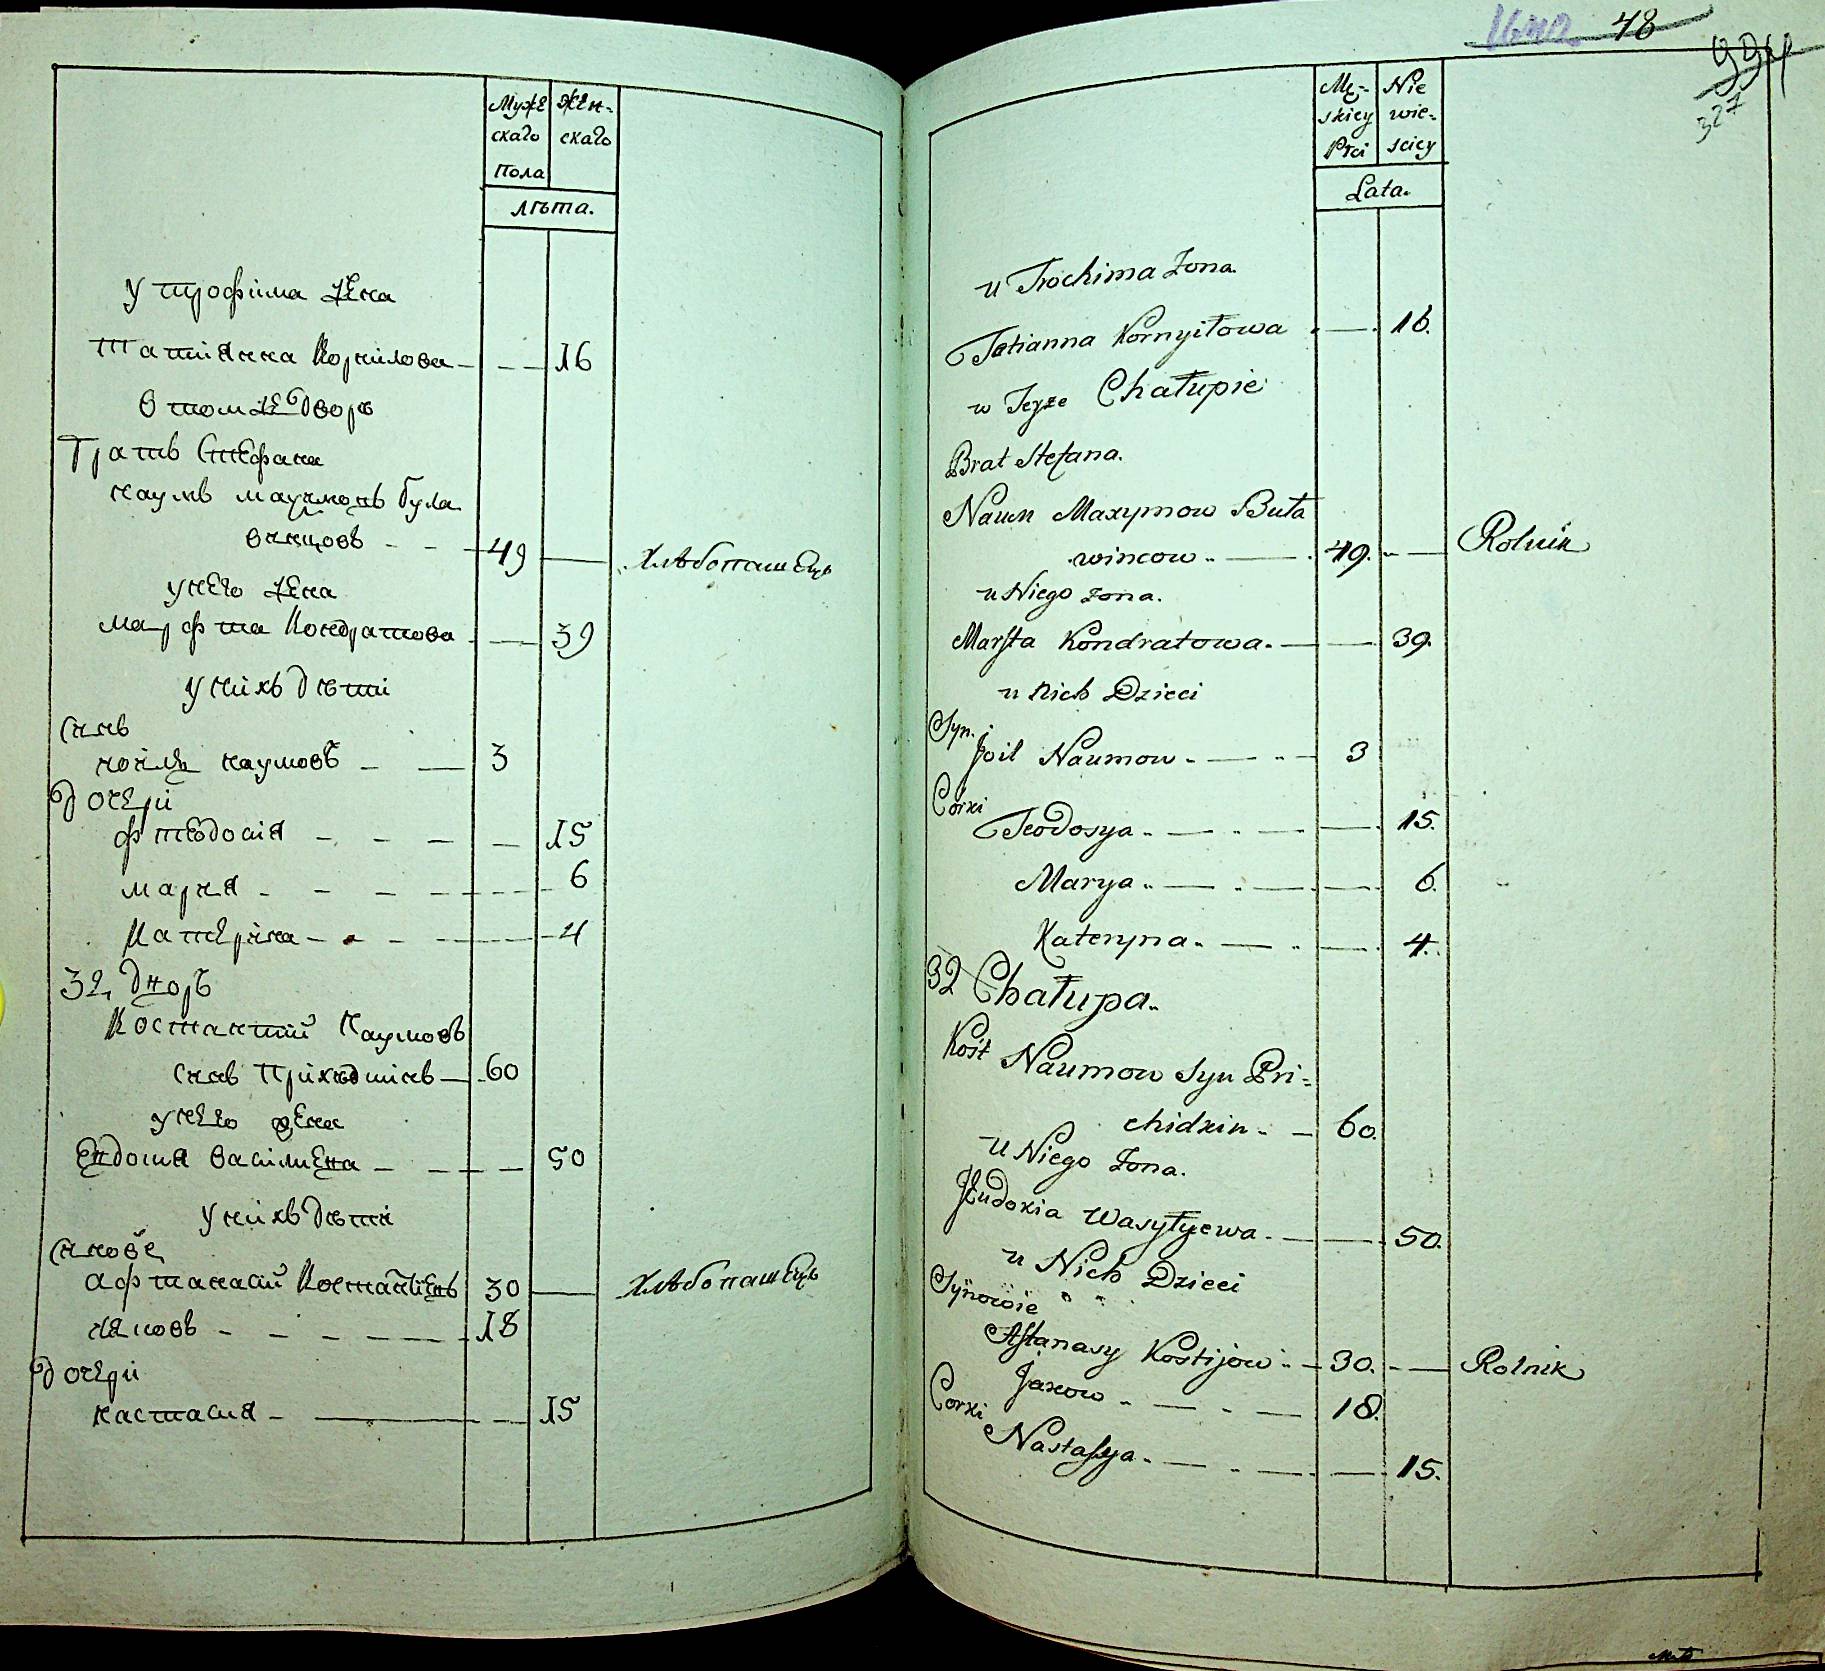 Муже Жен-
скаго скаго
Пола
лѣта.
у трофима жена
Татіянна Корнилова — 16
в томже дворѣ
Братъ Стефана
наумъ маѯимовъ була
винцовъ — 49 — Хлѣбопашецъ
унего жена
марфта Кондратова — 39
унихъ дѣти
Синъ
иоилъ наумовъ — 3
дочери
фтеодосия — 15
мария — 6
Катерина — 4
32, дворъ
Костантий Наумовъ
синъ Прихидкинъ — 60
унего жена
Евдокия василиева — 50
унихъ дѣти
Синове
афтанасий Костантиевъ 30 — Хлѣбопашецъ
иаковъ — 18
дочери
настасия — 15
48
994
327
Mę- Nie
skiey wie-
Płci sciey
Lata.
u Trochima Żona.
Tatianna Kornyiłowa — 16.
w Teyże Chałupie
Brat Stefana.
Naum Maxymow Buła
wincow — 49. — Rolnik
u Niego żona.
Marfta Kondratowa. — 39.
u nich Dzieci
Syn.
Joil Naumow — 3
Córki
Teodosya — 15.
Marya — 6.
Kateryna — 4.
32 Chałupa.
Kost Naumow Syn Pri=
chidkin — 60.
u Niego Żona.
Eudokia Wasyłyewa — 50.
u Nich Dzieci
Synowie
Aftanasy Kostijow — 30. — Rolnik
Jakow — 18.
Corki
Nastasya — 15.